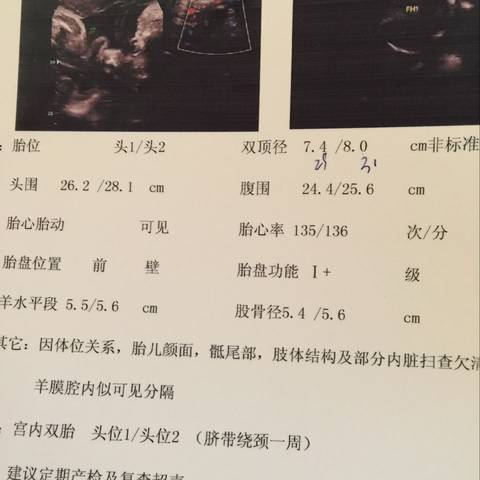 FH1
：胎位 头1/头2 双顶径 7.4 /8.0 cm非标准
头围 26.2 /28.1 cm 腹围 24.4/25.6 cm
胎心胎动 可见 胎心率 135/136 次/分
胎盘位置 前 壁 胎盘功能 Ⅰ+ 级
羊水平段 5.5/5.6 cm 股骨径5.4 /5.6 cm
其它：因体位关系，胎儿颜面，骶尾部，肢体结构及部分内脏扫查欠清
羊膜腔内似可见分隔
：宫内双胎 头位1/头位2 （脐带绕颈一周）
建议定期产检及复查超声